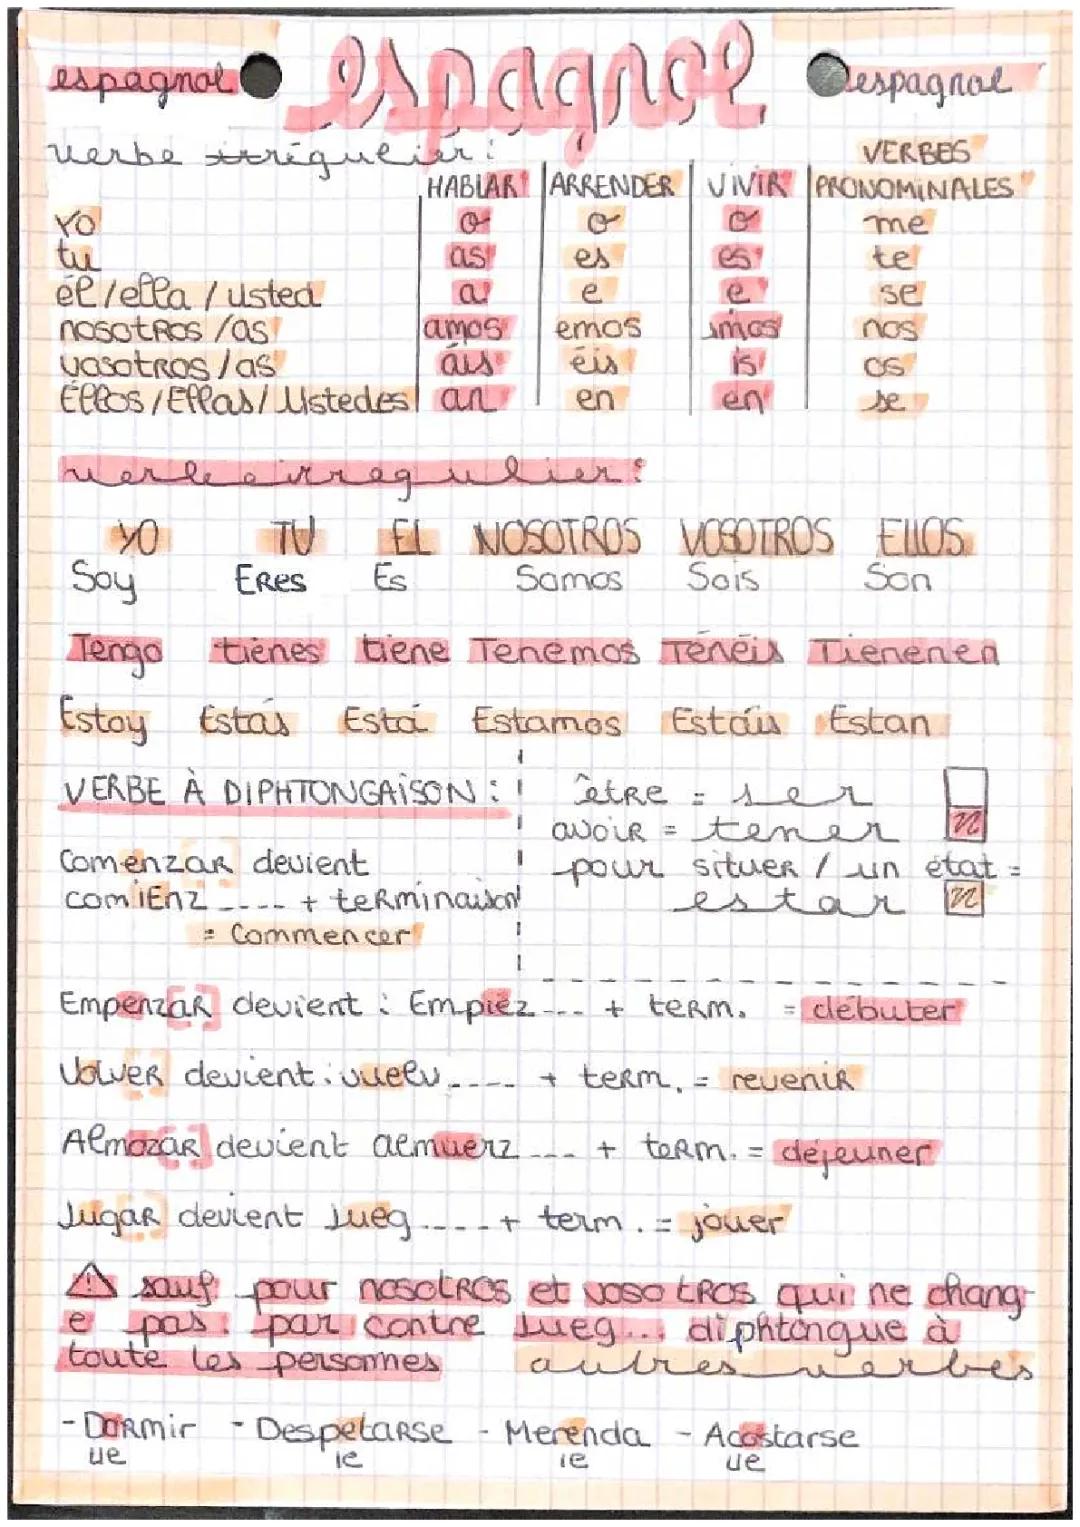 espagnol espagnol espagnol
verbe irrégulier :
VERBES
HABLAR ARRENDER VIVIR PRONOMINALES
YO o o o me
tu as es es te
él / ella / usted a e e se
nosotros /as amos emos imos nos
vosotros / as áis éis is os
Éllos / Ellas / Ustedes an en en se
verbe irregulier :
YO TU EL NOSOTROS VOSOTROS ELLOS
Soy ERes Es Somos Sois Son
Tengo tiènes tiene Tenemos Ténéis Tienenen
Estoy Estás Está Estamos Estáis Estan
VERBE À DIPHTONGAISON :
être = ser
avoir = tener n
pour situer / un état =
estar n
Comenzar devient
comienz ---- + terminaison
= Commencer
Empenzar devient : Empiéz --- + term. = débuter
Volver devient : vuelv ---- + term. = revenir
Almozar devient almuerz --- + term. = déjeuner
Jugar devient Jueg ---- + term. = jouer
⚠ sauf pour nosotros et vosotros qui ne chang-
e pas. par contre Jueg... diphtongue à
toute les personnes
autres verbes
- Dormir - Despetarse - Merenda - Acostarse
ue ie ie ue